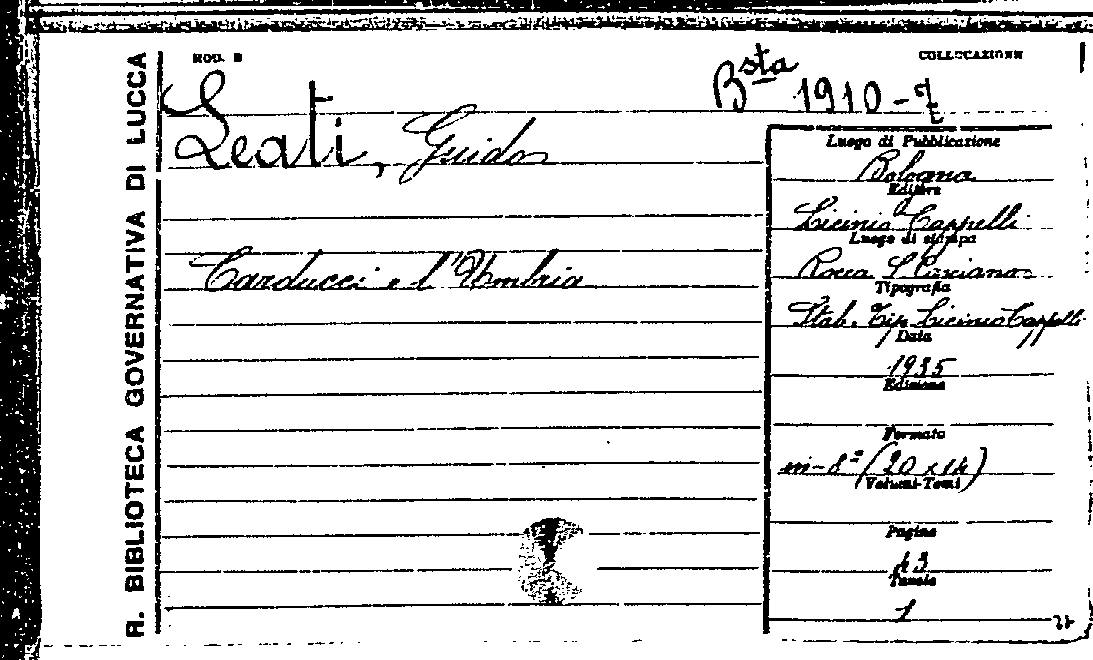 R. BIBLIOTECA GOVERNATIVA DI LUCCA
MOD. B
COLLOCAZIONE
Bsta 1910-7
Leati, Guido
Carducci e l'Umbria
Luogo di Pubblicazione
Bologna
Editore
Licinio Cappelli
Luogo di stampa
Rocca S. Casciano
Tipografia
Stab. Tip. Licinio Cappelli
Data
1935
Edizione
Formato
in-8º (20 x 14)
Volumi-Tomi
Pagine
43
Tavole
1